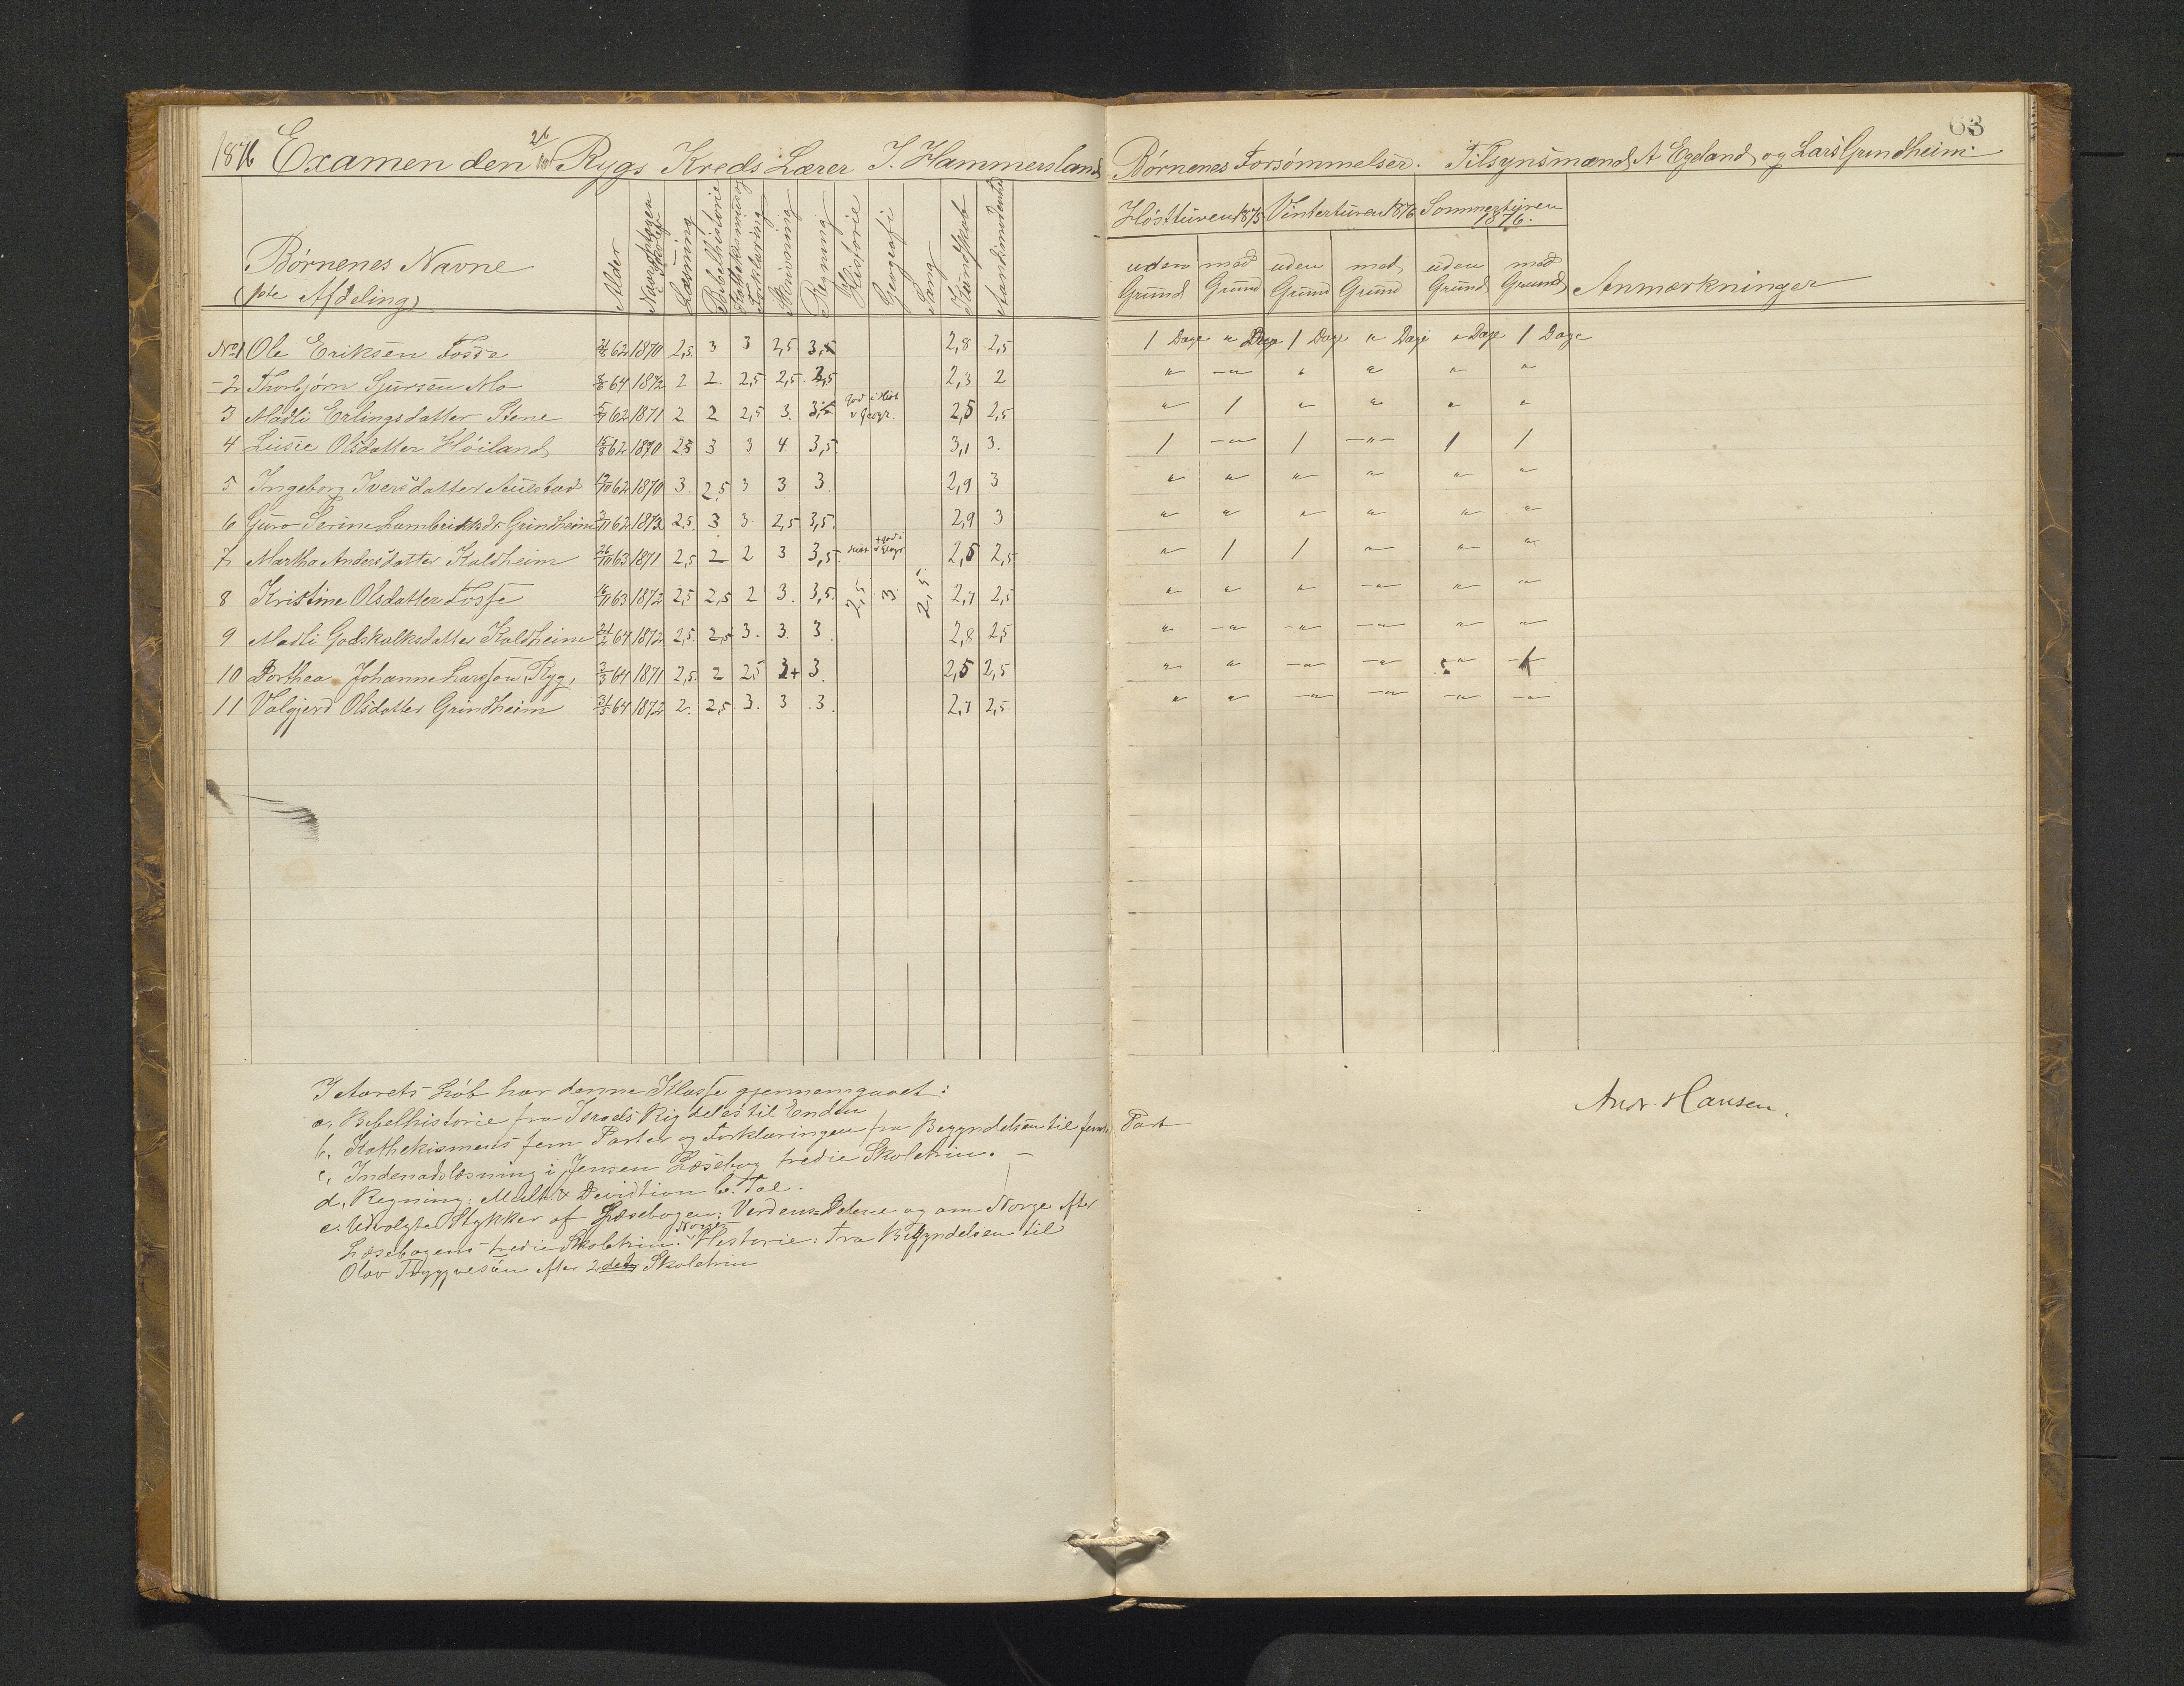 63
1876 Examen den 26/10 Rygs Kreds Lærer I. Hammersland
Børnenes Forsømmelser. Tilsynsmænd A Egeland og Lars Grindheim
Børnenes Navne
(1ste Afdeling)
Alder
Naar optagen i Skolen
Læsning
Bibelhistorie
Kathekismus og Forklaring
Skrivning
Regning
Historie
Geografi
Sang
Kundskab
Høstturen 1875 Vinterturen 1876 Sommerturen 1876.
uden Grund med Grund uden Grund med Grund uden Grund med Grund Anmærkninger
No 1 Ole Eriksen Fosse 62 1870 2,5 3 3 2,5 3,5 2,8 2,5 1 Dage " Dage 1 Dage " Dage " Dage 1 Dage
-2 Thorbjørn Sjursen Mo 64 1872 2 2 2,5 2,5 2,5 2,3 2 " -"- " " " "
3 Madli Erlingsdatter Stene 62 1871 2 2 2,5 3. 3,5 god i Hist. & Geogr. 2,5 2,5 " 1 " " " "
4 Lisie Olsdatter Høiland 62 1870 2,5 3 3 4. 3,5 3,1 3. 1 -"- 1 -"- 1 1
5 Ingeborg Iversdatter Aulestad 62 1870 3. 2,5 3 3 3. 2,9 3 " " " " " "
6 Guro Serine Lambriktsdr Grindheim 62 1872 2,5. 3 3 2,5 3,5. 2,9 3 " " " " " "
7 Martha Andersdatter Kaldheim 26/10 63 1871 2,5 2 2 3 3,5. 2,5 2,5 " 1 1 " " "
8 Kristine Olsdatter Fosse 63 1872 2,5 2,5 2 3. 3,5. 2,5. 3. 2,5. 2,7 2,5 " " " -"- " "
9 Madli Godskalksdatter Kaldheim 64 1872 2,5. 2,5 3. 3. 3. 2,8 2,5 " -"- -"- -"- " "
10 Dorthea Johanne Larsson Ryg, 3/3 64 1871 2,5. 2 2,5 3+ 3. 2,5 2,5 " " -"- -"- -"- 1
11 Valgjerd Olsdatter Grindheim 64 1872 2. 2,5. 3. 3 .3. 2,7 2,5. " " -"- -"- -"- -"-
I Aarets Løb har denne Klasse gjennemgaaet:
a. Bibelhistorie fra Israels Rig deles til Enden
b. Kathekismens fem Parter og Forklaringen fra Begyndelsen til femte Part
c. Indenadslæsning i Jensen Læsebog tredie Skoletrin. -
d. Regning: Mult. & Devidtion b. Tal.
e. Udvalgte Stykker af Læsebogen: Verdens-Delene og om Norge efter
Læsebogens tredie Skoletrin. Norges Historie: Fra Begyndelsen til
Olav Tryggvesøn efter 2det Skoletrin
Andr. Hansen.